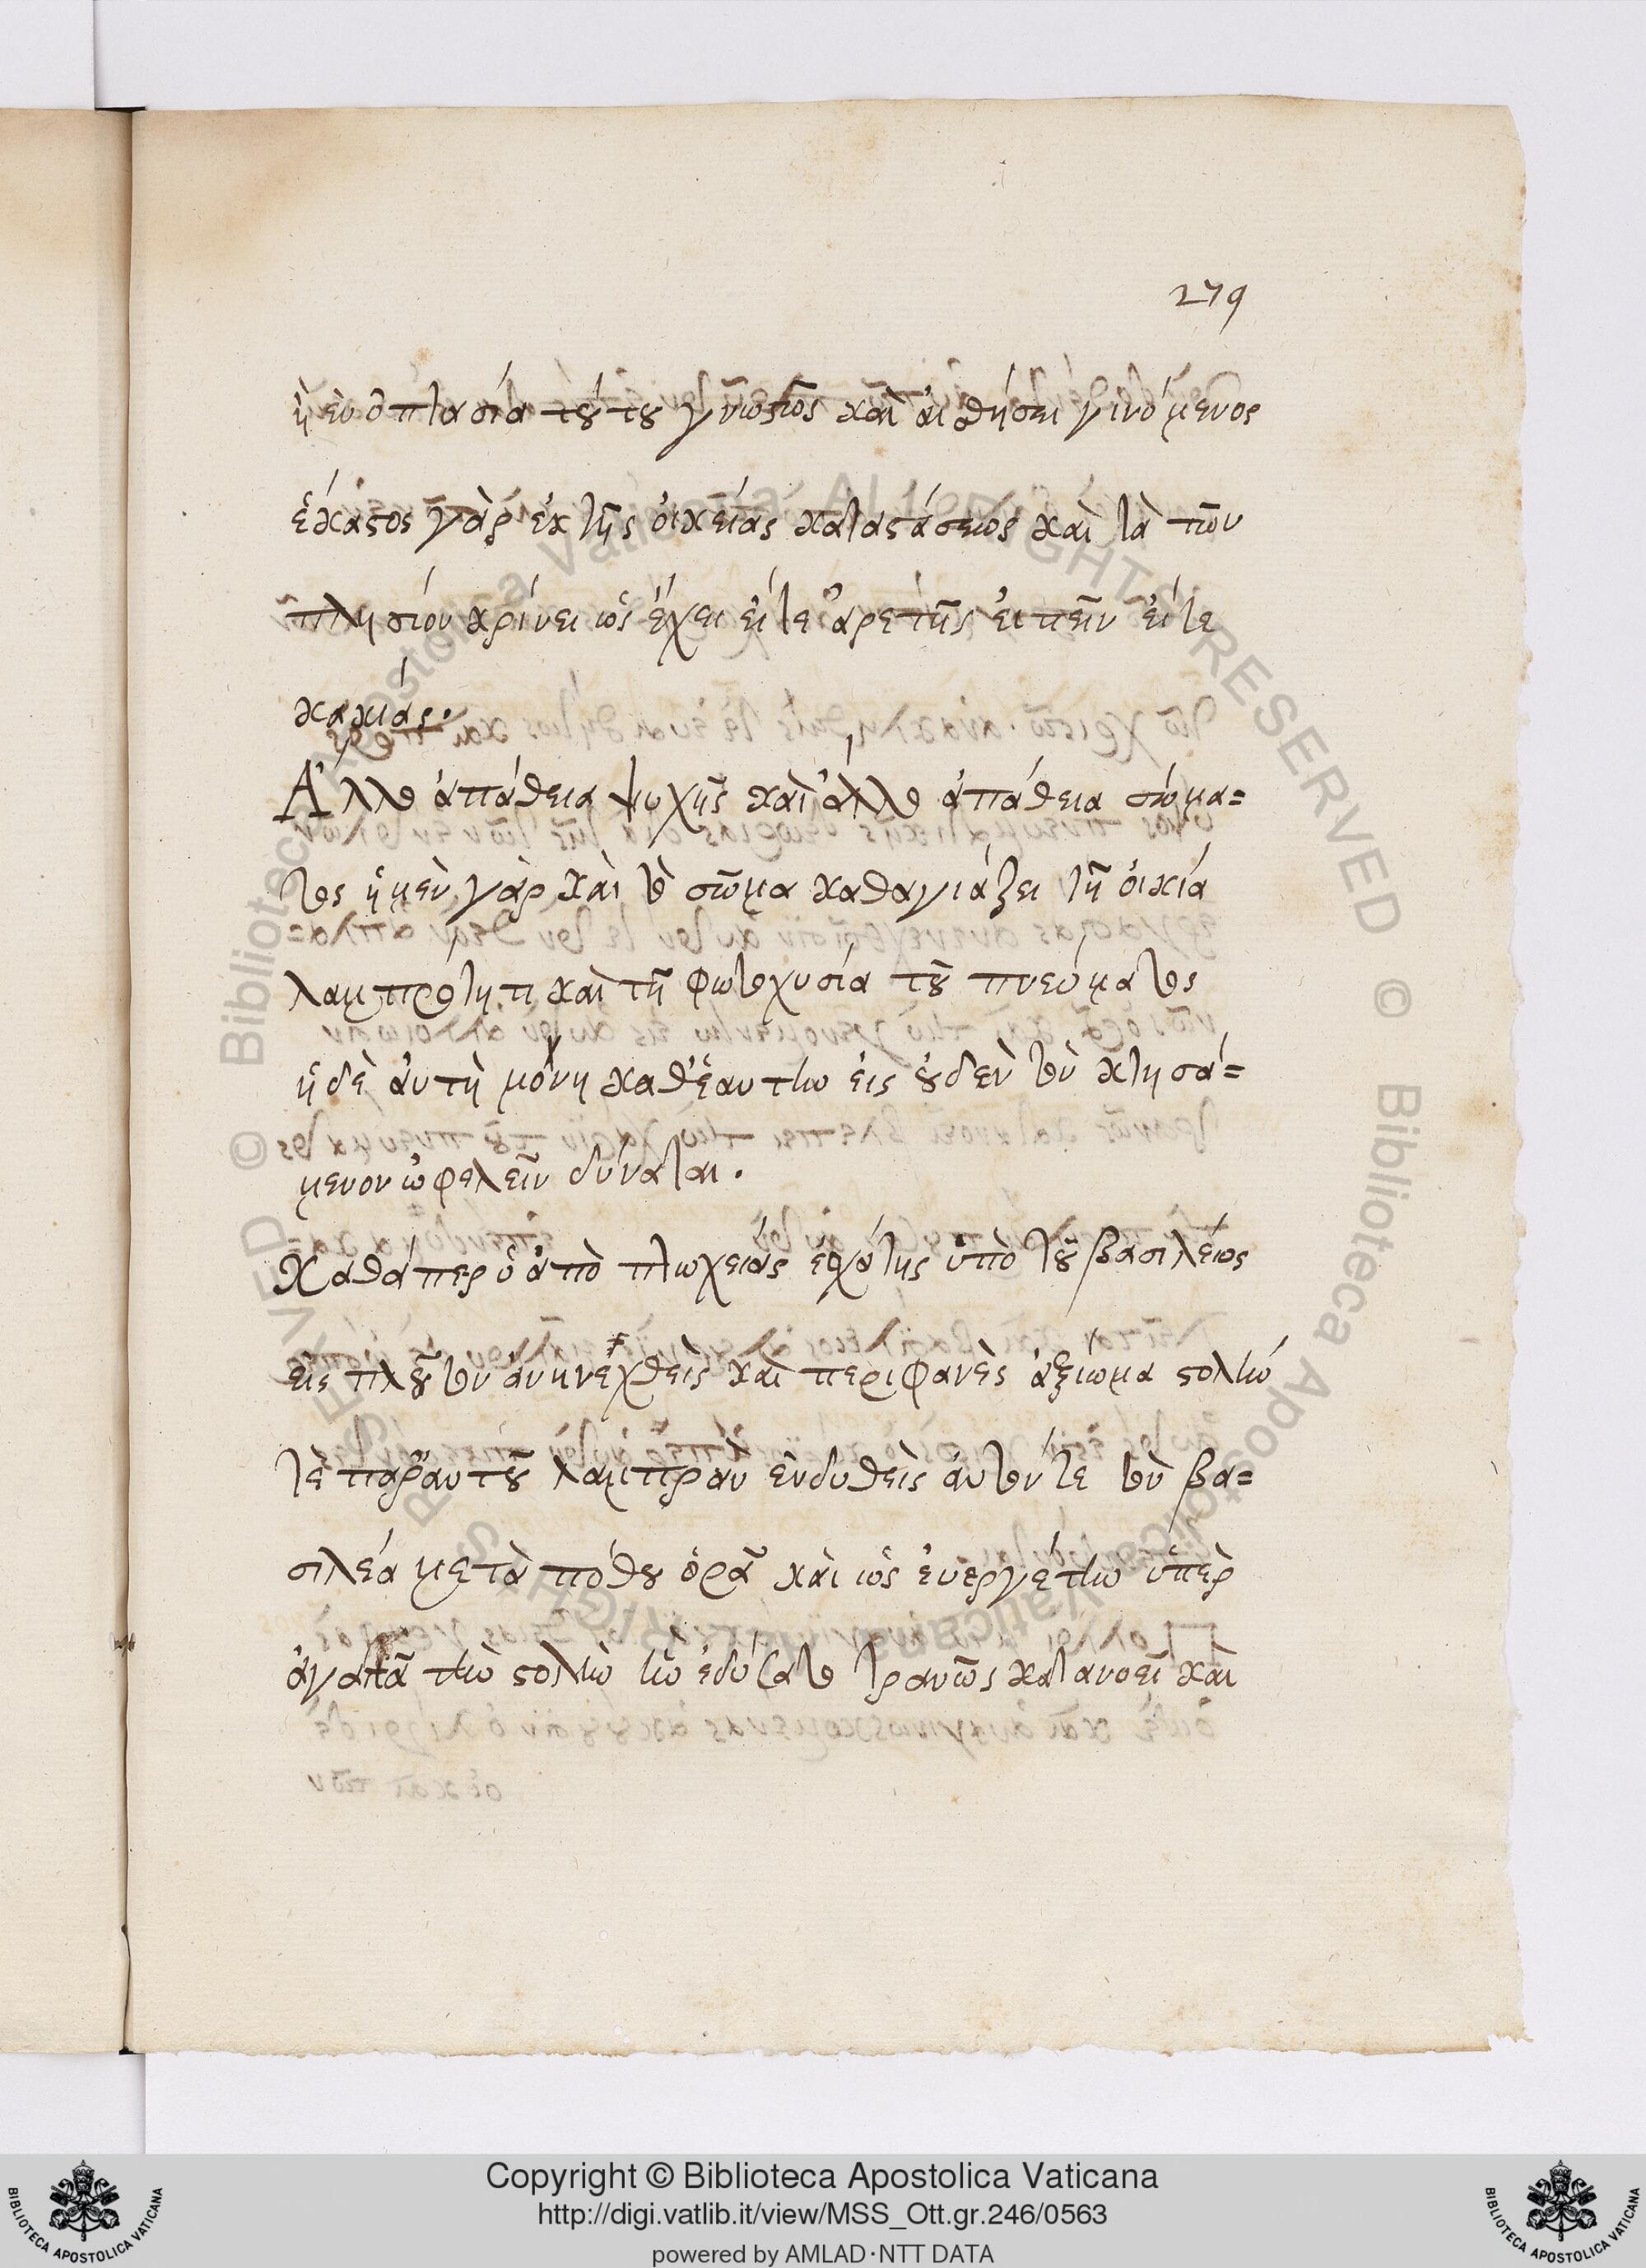 279
ἢ ἐν ὀπτασία τούτου γνωστῶς καὶ αἰσθήσει γινόμενος
ἕκαστος γὰρ ἐκ τῆς οἰκείας καταστάσεως καὶ τὰ τῶν
πλησίον κρίνει ὡς ἔχει εἴτε ἀρετῆς εἰπεῖν εἴτε
κακίας.
Ἄλλο ἀπάθεια ψυχῆς καὶ ἄλλο ἀπάθεια σώμα=
τος ἡ μὲν γὰρ καὶ τὸ σῶμα καθαγιάζει τῆ οἰκία
λαμπρότητι καὶ τῆ φωτοχυσία τοῦ πνεύματος
ἡ δὲ αὐτὴ μόνη καθ' ἑαυτὴν εἰς οὐδὲν τὸν κτησά=
μενον ὠφελεῖν δύναται.
Καθάπερ ὁ ἀπὸ πτωχείας ἐσχάτης ὑπὸ τοῦ βασιλέως
εἰς πλοῦτον ἀνενεχθεὶς καὶ περιφανὲς ἀξίωμα στολὴν
τὲ παρ' αυτοῦ λαμπρὰν ἐνδυθεὶς αὐτόν τε τὸν βα=
σιλέα μετὰ πόθου ὁρᾶ καὶ ὡς ἐυεργέτην ὑπὲρ
ἀγαπᾶ τὴν στολὴν ἣν ἐδύσατο τρανῶς κατανοεῖ καὶ
Copyright © Biblioteca Apostolica Vaticana
http://digi.vatlib.it/view/MSS_Ott.gr.246/0563
powered by AMLAD·NTT DATA
BIBLIOTECA APOSTOLICA VATICANA
BIBLIOTECA APOSTOLICA VATICANA